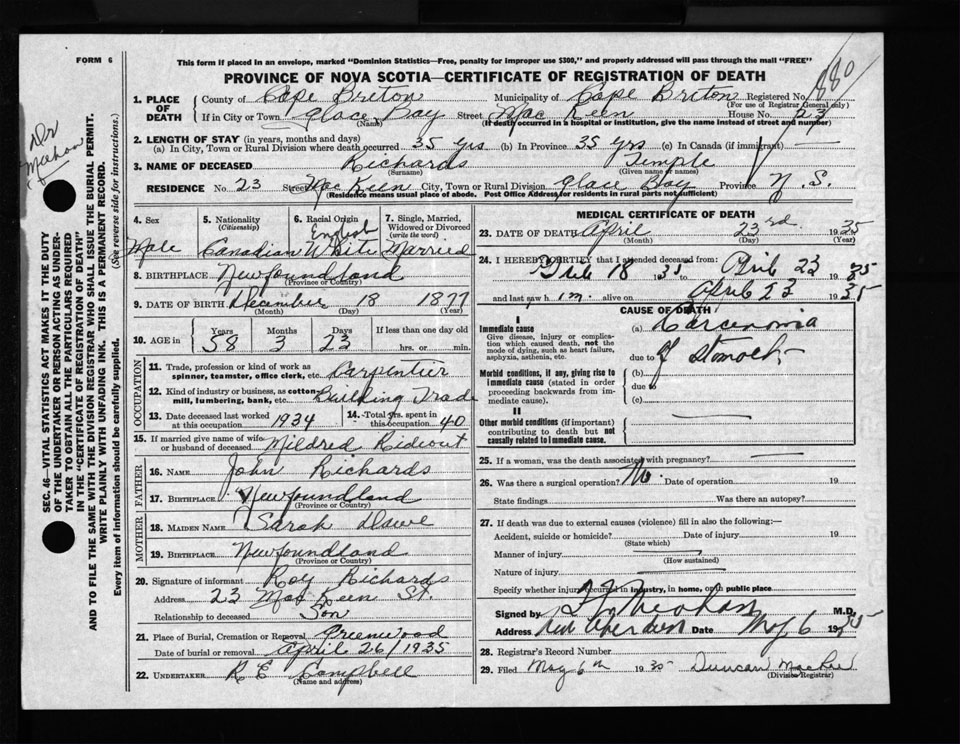 FORM 6
This form if placed in an envelope, marked "Dominion Statistics—Free, penalty for improper use $300," and properly addressed will pass through the mail "FREE"
PROVINCE OF NOVA SCOTIA—CERTIFICATE OF REGISTRATION OF DEATH
Dr Meehan
SEC. 46—VITAL STATISTICS ACT MAKES IT THE DUTY
OF THE UNDERTAKER OR PERSON ACTING AS UNDER-
TAKER TO OBTAIN ALL THE PARTICULARS REQUIRED
IN THE "CERTIFICATE OF REGISTRATION OF DEATH"
AND TO FILE THE SAME WITH THE DIVISION REGISTRAR WHO SHALL ISSUE THE BURIAL PERMIT.
WRITE PLAINLY WITH UNFADING INK. THIS IS A PERMANENT RECORD.
Every item of information should be carefully supplied. (See reverse side for instructions.)
1. PLACE OF DEATH County of Cape Breton Municipality of Cape Briton Registered No. 880
(For use of Registrar General only)
If in City or Town Glace Bay Street Mac Keen House No. 23
(Name) (If death occurred in a hospital or institution, give the name instead of street and number)
2. LENGTH OF STAY (in years, months and days)
(a) In City, Town or Rural Division where death occurred 35 yrs (b) In Province 35 yrs (c) In Canada (if immigrant) —
3. NAME OF DECEASED Richards Temple
(Surname) (Given name or names)
RESIDENCE No. 23 Street Mac Keen City, Town or Rural Division Glace Bay Province N. S.
(Residence means usual place of abode. Post Office Address for residents in rural parts not sufficient)
4. Sex Male
5. Nationality (Citizenship) Canadian
6. Racial Origin English White
7. Single, Married, Widowed or Divorced (write the word) Married
8. BIRTHPLACE Newfoundland
(Province or Country)
9. DATE OF BIRTH December 18 1877
(Month) (Day) (Year)
10. AGE in Years 58 Months 3 Days 23 If less than one day old hrs. or min.
OCCUPATION
11. Trade, profession or kind of work as spinner, teamster, office clerk, etc. Carpentier
12. Kind of industry or business, as cotton-mill, lumbering, bank, etc. Building Trade
13. Date deceased last worked at this occupation 1934 14. Total yrs. spent in this occupation 40
15. If married give name of wife or husband of deceased Mildred Rideout
FATHER
16. NAME John Richards
17. BIRTHPLACE Newfoundland
(Province or Country)
MOTHER
18. MAIDEN NAME Sarah Dawe
19. BIRTHPLACE Newfoundland
(Province or Country)
20. Signature of informant Roy Richards
Address 23 Mac Keen St.
Relationship to deceased Son
21. Place of Burial, Cremation or Removal Greenwood
Date of burial or removal April 26/1935
22. UNDERTAKER R E Campbell
(Name and address)
MEDICAL CERTIFICATE OF DEATH
23. DATE OF DEATH April 23rd. 1935
(Month) (Day) (Year)
24. I HEREBY CERTIFY that I attended deceased from:
18 1935 to April 23 1935
and last saw him alive on April 23 1935
CAUSE OF DEATH
I
Immediate cause (a) Carcenomia
Give disease, injury or complication which caused death, not the mode of dying, such as heart failure, asphyxia, asthenia, etc.
due to of Stomoch
Morbid conditions, if any, giving rise to immediate cause (stated in order proceeding backwards from immediate cause).
(b)
due to
(c)
II
Other morbid conditions (if important) contributing to death but not causally related to immediate cause.
25. If a woman, was the death associated with pregnancy?
26. Was there a surgical operation? No. Date of operation 19
State findings Was there an autopsy?
27. If death was due to external causes (violence) fill in also the following:—
Accident, suicide or homicide? Date of injury 19
(State which)
Manner of injury
(How sustained)
Nature of injury
Specify whether injury occurred in industry, in home, or in public place
Signed by Meehan M.D.
Address New Aberdeen Date May 6 1935
28. Registrar's Record Number
29. Filed May 6th 1935 Duncan
(Division Registrar)